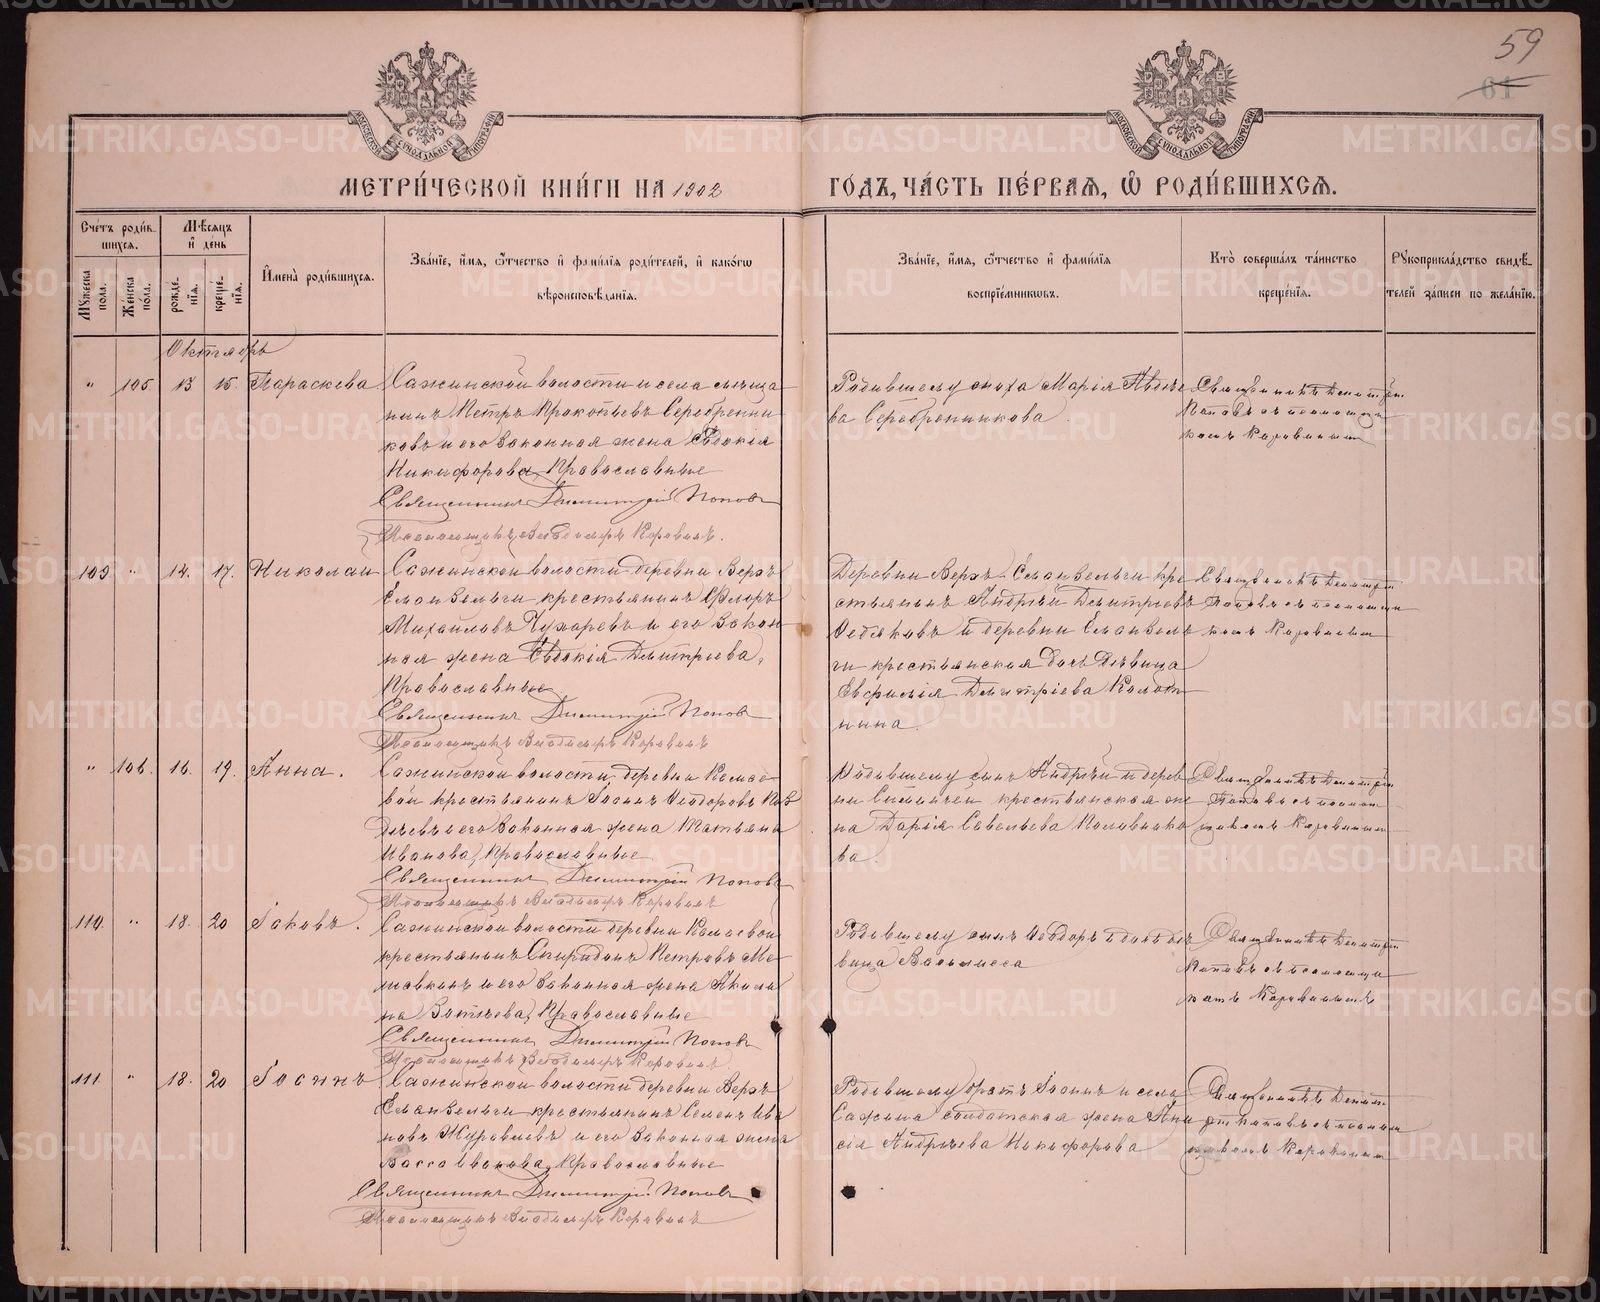 59
61
МЕТРИ́ЧЕСКОЙ КНИ́ГИ НА 1902 ГОДЪ, ЧА́СТЬ ПЕ́РВАѦ, Ѡ҆ РОДИ́ВШИХСѦ.
Сче́тъ роди́в
шихся.
Мѣсяцъ
и҆ де́нь
Мꙋжеска
пола.
Же́нска
по́ла.
рожде́-
нїя.
креще́-
нїя.
И҆мена̀ роди́вшихся.
Зва́нїе, и҆́мя, ѻ҆́тчество и҆ фамилїя роди́телей, и҆ како́гѡ
вѣроисповѣданїя.
Зва́нїе, и҆́мя, ѻ҆́тчество и҆ фами́лїя
воспрїе́мникѡвъ.
Кто̀ соверша́лъ та́инство
креще́нїя.
Рꙋкоприкла́дство свидѣ́-
телей за́писи по жела́нїю.
Октябрь
" 105. 13 15. Параскева
Сажинской волости и села мѣща
нинъ Петръ Прокопьевъ Серебренни
ковъ и его законная жена Евдокія
Никифорова, Православные
Священникъ Димитрій Поповъ
Псаломщикъ Владимръ Коровинъ.
Родившему сноха Марія Авдѣе
ва Серебренникова.
Священникъ Димитрій
Поповъ съ псаломщи
комъ Коровинымъ
109 " 14. 17. Николай
Сажинской волости деревни Верхъ
крестьянинъ Флоръ
Михайловъ Чухаревъ и его закон
ная жена Евдокія Димитріева,
Православные
Священникъ Димитрій Поповъ
Псаломщикъ Владимръ Коровинъ
Деревни Верхъ кре
стьянинъ Андрей Дмитріевъ
и деревни
ги крестьянская дочь дѣвица
Дмитріева
нина.
Священникъ Димитрій
Поповъ съ псаломщи
комъ Коровинымъ
" 106. 16. 19. Анна.
Сажинской волости деревни
вой крестьянинъ Іосифъ Ѳеодоровъ
и его законная жена Татьяна
Иванова, Православные
Священникъ Димитрій Поповъ
Псаломщикъ Владимръ Коровинъ
Родившему сынъ Андрей и дерев
ни крестьянская же
на Дарія Савельева
ва.
Священникъ Димитрій
Поповъ съ псалом
щикомъ Коровинымъ
110. " 18. 20 Іаковъ.
Сажинской волости деревни
крестьянинъ Спиридонъ Петровъ
и его законная жена Акили
на Зотѣева, Православные
Священникъ Димитрій Поповъ
Псаломщикъ Владимръ Коровинъ
Родившему сынъ Ѳеодоръ и дочь дѣ
вица Василисса
Священникъ Димитрій
Поповъ съ псаломщи
комъ Коровинымъ
111. " 18. 20 Іосифъ
Сажинской волости деревни Верхъ
крестьянинъ Семенъ Ива
новъ Журавлевъ и его законная жена
Васса Иванова, Православные
Священникъ Димитрій Поповъ
Псаломщикъ Владимръ Коровинъ
Родившему братъ Іосифъ и села
Сажина солдатская жена Ани
сія Андреева Никифорова
Священникъ Димит
рій Поповъ съ псалом
щикомъ Коровинымъ
METRIKI.GASO-URAL.RU